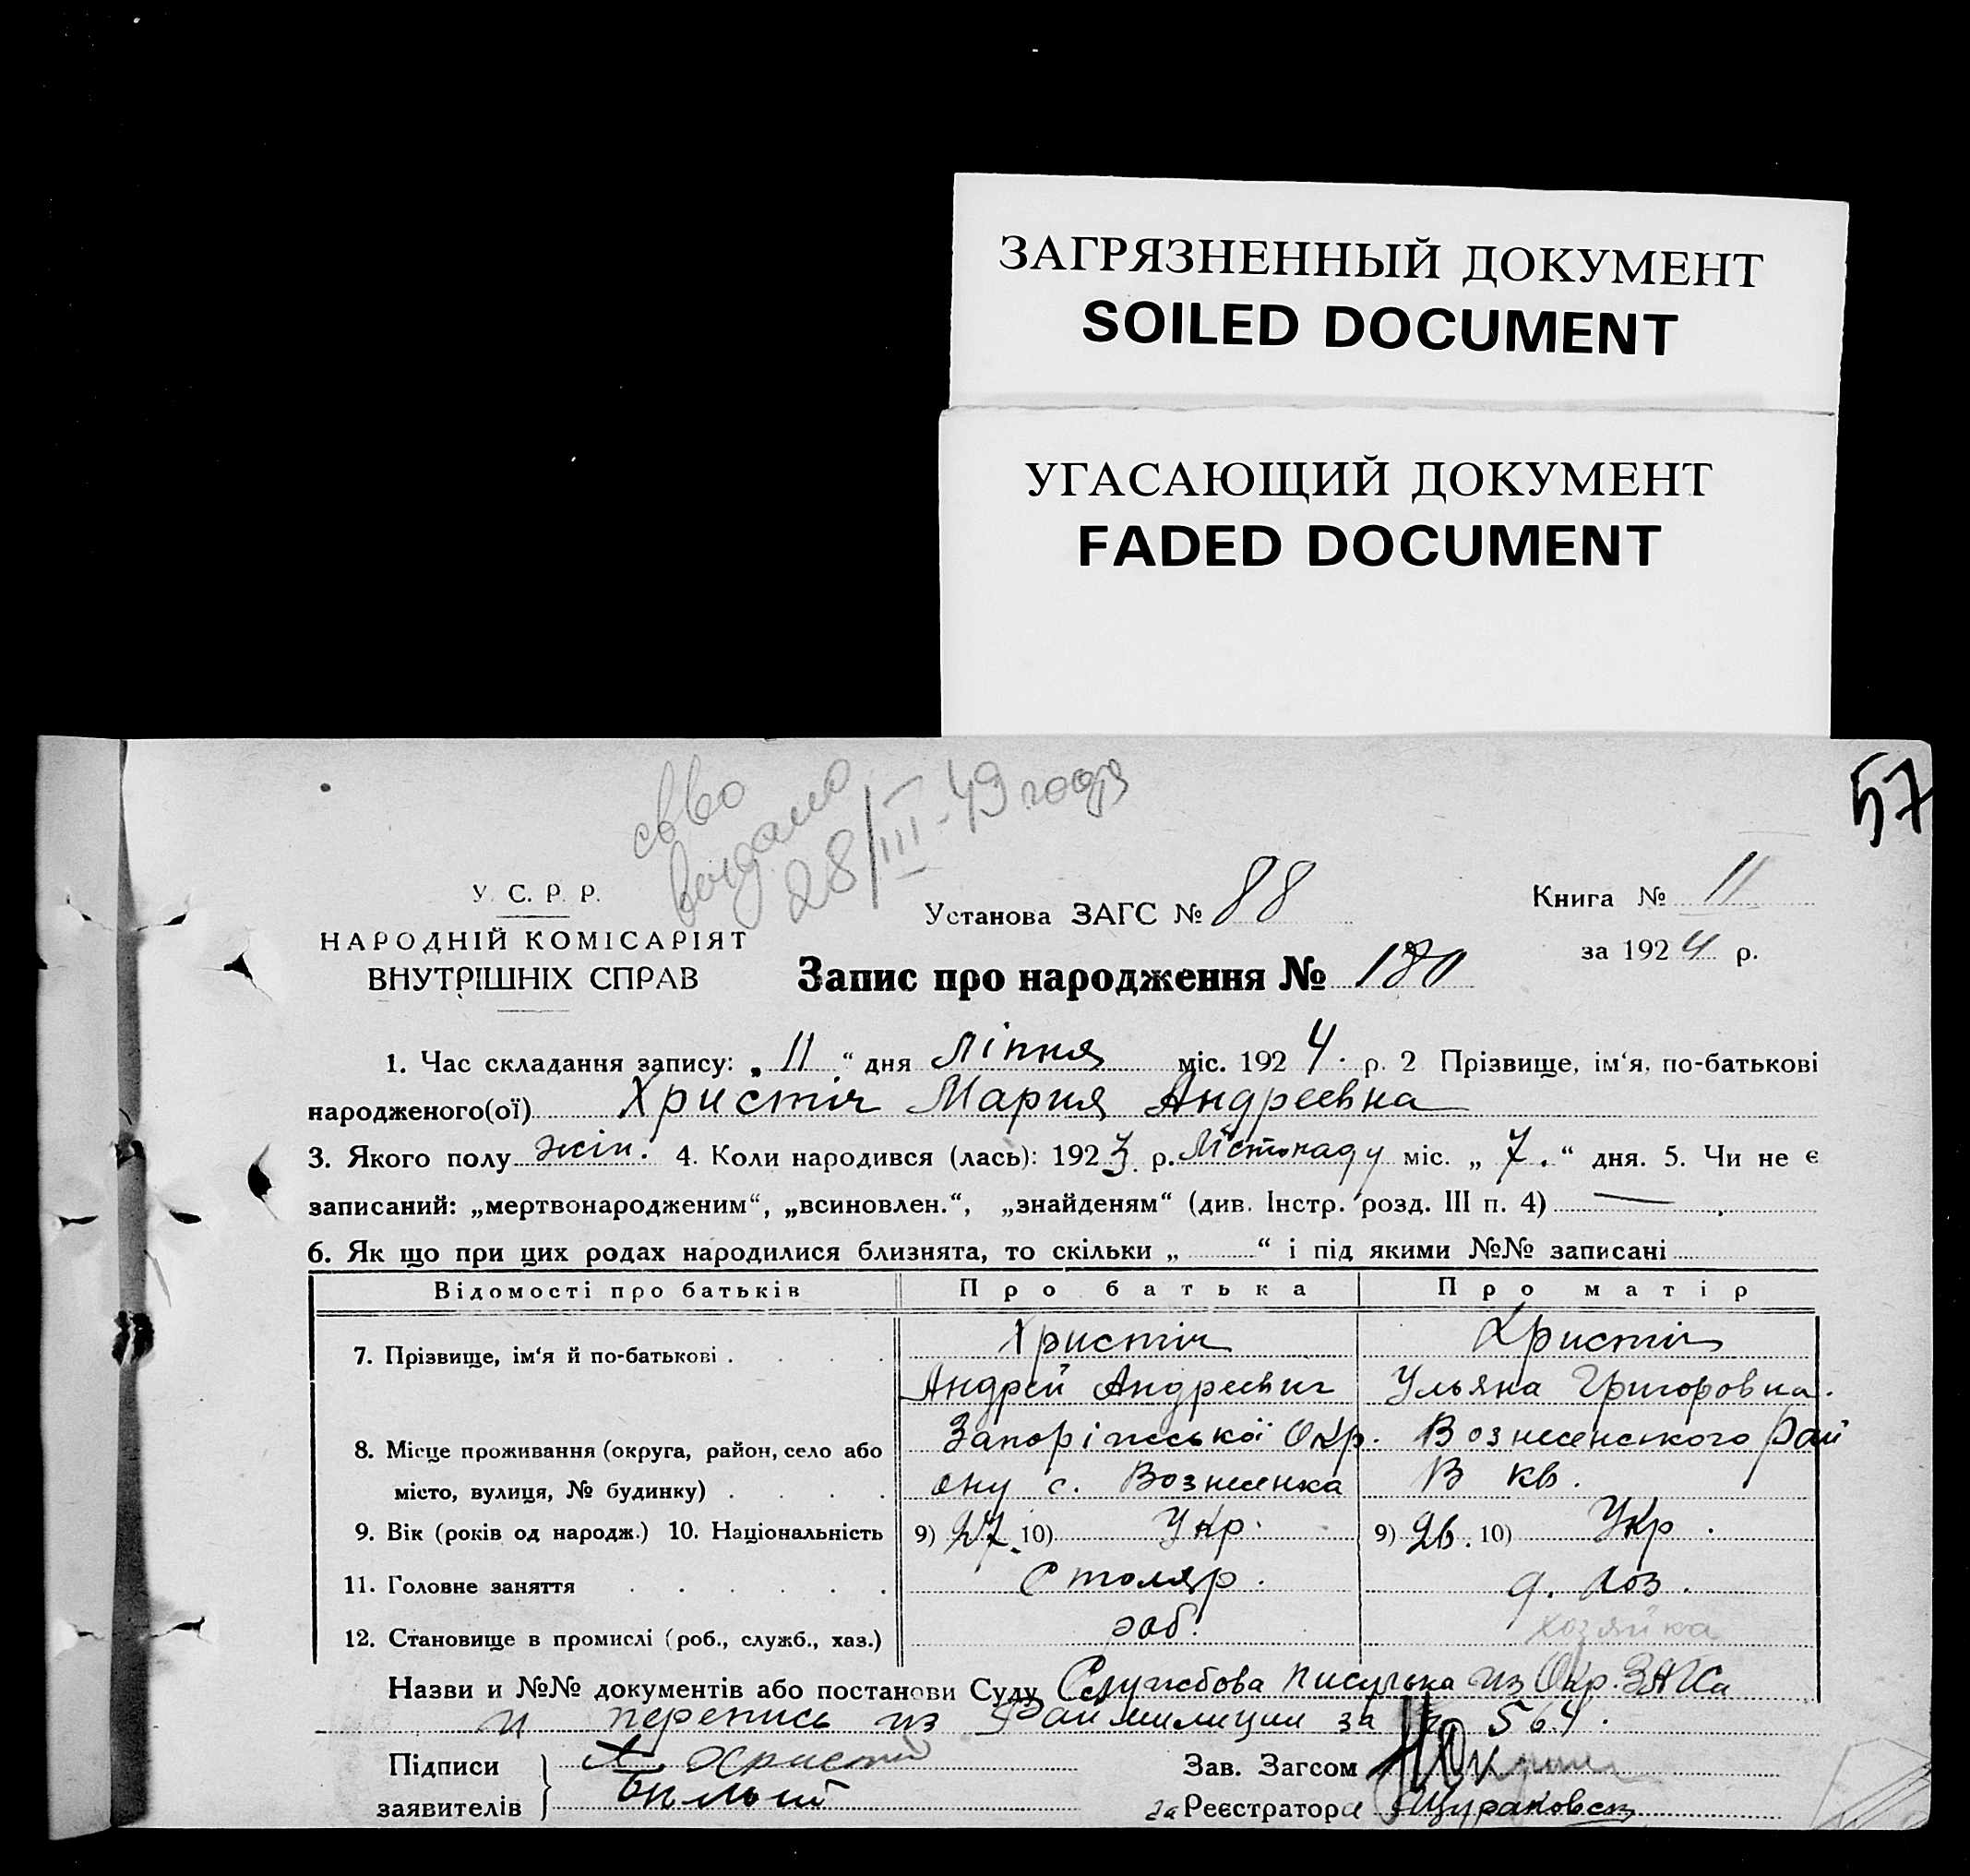 ЗАГРЯЗНЕННЫЙ ДОКУМЕНТ
SOILED DOCUMENT
УГАСАЮЩИЙ ДОКУМЕНТ
FADED DOCUMENT
57
св-во
выдано
28/III-49 года
У. С. Р. Р.
НАРОДНІЙ КОМІСАРІЯТ
ВНУТРІШНІХ СПРАВ
Установа ЗАГС № 88
Книга № 11
за 1924 р.
Запис про народження № 180
1. Час складання запису: „ 11 “ дня Ліпня міс. 1924. р. 2 Прізвище, ім‘я, по-батькові
народженого(ої) Христіч Мария Андреевна
3. Якого полу жін. 4. Коли народився (лась): 1923 р. Лістопаду міс. „ 7. “ дня. 5. Чи не є
записаний: „мертвонародженим“, „всиновлен.“, „знайденям“ (див. Інстр. розд. III п. 4) —
6. Як що при цих родах народилися близнята, то скільки „ “ і під якими №№ записані
Відомості про батьків Про батька Про матір
7. Прізвище, ім‘я й по-батькові . Христіч Христіч
Андрей Андреевич Ульяна Григоровна.
8. Місце проживання (округа, район, село або Запоріжської Окр. Вознесенського Рай
місто, вулиця, № будинку) ону с. Вознесенка В кв.
9. Вік (років од народж.) 10. Національність 9) 27. 10) Укр. 9) 26. 10) Укр.
11. Головне заняття Столяр. д. хоз.
12. Становище в промислі (роб., служб., хаз.) роб. хозяйка
Назви и №№ документів або постанови Суду Службова писулька из Окр. ЗАГСа
и перепись из Раймилиции за № 564.
Підписи Х. Христіч Зав. Загсом
заявителів за Реєстратора